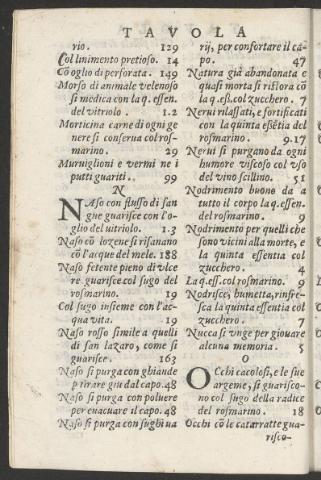 TAVOLA
rio. 129
Col linimento pretioso. 14
Cō oglio di perforata. 149
Morso di animale velenoso
si medica con la q. essen.
del vitriolo . 1.2
Morticina carne di ogni ge
nere si conserua col ros-
marino. 29
Muruiglioni e vermi ne i
putti guariti . . 99
N
NAso con flusso di san
gue guarisce con l'o-
glio del vitriolo. 1.3
Naso cō lozene si risanano
cō l'acque del mele. 188
Naso fetente pieno di vlce
re guarisce col sugo del
rosmarino. 19
Col sugo insieme con l'ac-
qua vita. 19
Naso rosso simile a quelli
di san lazaro, come si
guarisce. 163
Naso si purga con ghiande
p tirare giu dal capo. 48
Naso si purga con poluere
per euacuare il capo. 48
Naso si purga con sughi ua
rij, per confortare il ca-
po. 47
Natura già abandonata e
quasi morta si ristora cō
la q. eß. col zucchero. 7
Nerui rilassati, e fortificati
con la quinta essētia del
rosmarino. 9.17
Nerui si purgano da ogni
humore viscoso col vso
del vino scillino. 51
Nodrimento buono da a
tutto il corpo la q. essen.
del rosmarino. 9
Nodrimento per quelli che
sono vicini alla morte, e
la quinta essentia col
zucchero. 4
La q. ess. col rosmarino. 9
Nodrisce, humetta, rinfre-
sca la quinta essentia col
zucchero. 7
Nucca si vnge per giouare
alcuna memoria. 5
O
OCchi cacolosi, e le sue
argeme, si guarisco-
no col sugo della radice
del rosmarino. 18
Occhi cō le catarratte gua-
risco-